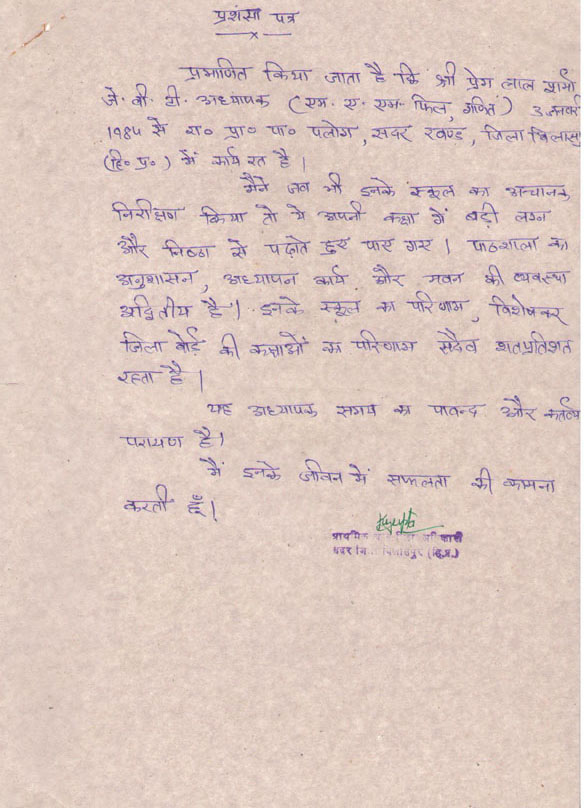 प्रशंसा पत्र
प्रमाणित किया जाता है कि श्री प्रेम लाल शर्मा
जे. बी. टी. अध्यापक (एम. ए. एम. फिल, गणित) 3 जनवरी
1984 से रा० प्रा० पा० पलोग, सदर खण्ड, जिला बिलासपु
(हि० प्र०) में कार्य रत है।
मैंने जब भी इनके स्कूल का अचानक
निरीक्षण किया तो ये अपनी कक्षा में बड़ी लग्न
और निष्ठा से पढ़ाते हुए पाए गए। पाठशाला का
अनुशासन, अध्यापन कार्य और भवन की व्यवस्था
अद्वितीय है। इनके स्कूल का परिणाम, विशेषकर
जिला बोर्ड की कक्षाओं का परिणाम सदैव शतप्रतिशत
रहता है।
यह अध्यापक समय का पाबन्द और कर्तव्य
परायण है।
मैं इनके जीवन में सफलता की कामना
करती हूँ।